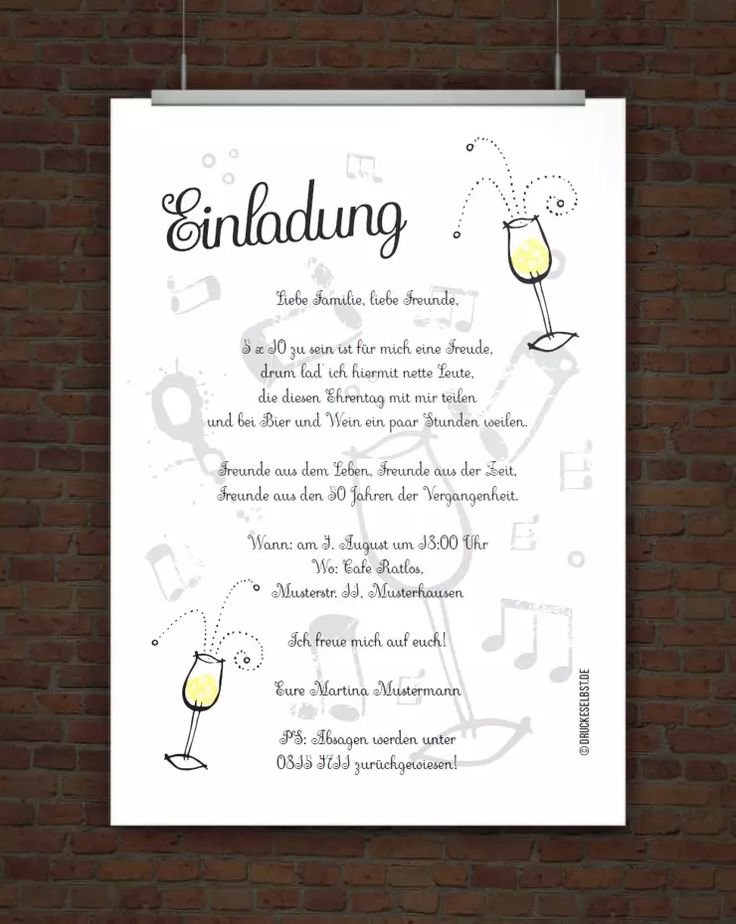 Einladung
Liebe Familie, liebe Freunde,
5 x 10 zu sein ist für mich eine Freude,
drum lad' ich hiermit nette Leute,
die diesen Ehrentag mit mir teilen
und bei Bier und Wein ein paar Stunden weilen.
Freunde aus dem Leben, Freunde aus der Zeit,
Freunde aus den 50 Jahren der Vergangenheit.
Wann: am 7. August um 18:00 Uhr
Wo: Cafe Ratlos,
Musterstr. 11, Musterhausen
Ich freue mich auf euch!
Eure Martina Mustermann
PS: Absagen werden unter
0815 4711 zurückgewiesen!
© DRUCKESELBST.DE